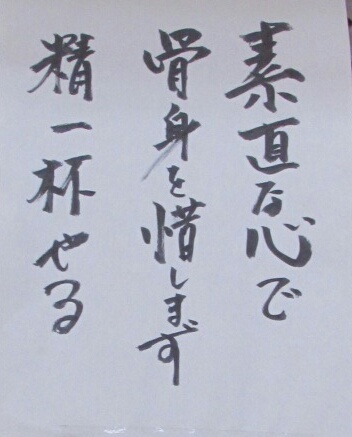 素直な心で
骨身を惜しまず
精一杯やる